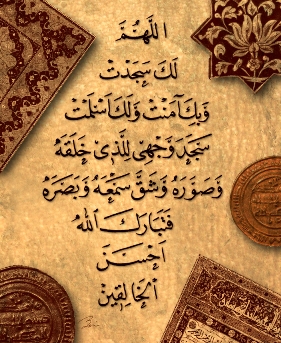 اللَّهُمَّ
لَكَ سَجَدْتُ
وَبِكَ آمَنْتُ وَلَكَ أَسْلَمْتُ
سَجَدَ وَجْهِيَ لِلَّذِي خَلَقَهُ
وَصَوَّرَهُ وَشَقَّ سَمْعَهُ وَبَصَرَهُ
فَتَبَارَكَ اللهُ
أَحْسَنُ
الْخَالِقِينَ